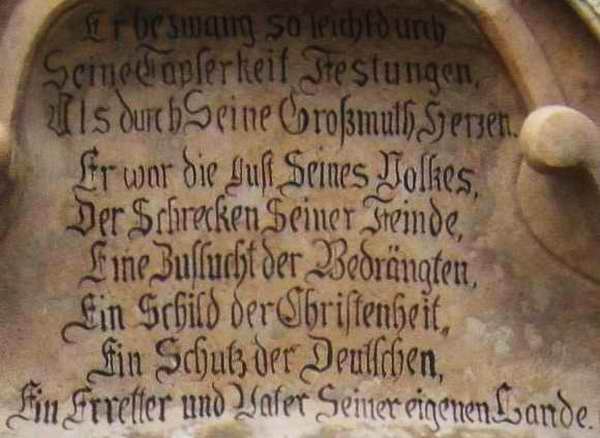 Er bezwang so leicht durch
Seine Tapferkeit Festungen,
Als durch Seine Großmuth, Herzen.
Er war die Lust Seines Volkes,
Der Schrecken Seiner Feinde,
Eine Zuflucht der Bedrängten,
Ein Schild der Christenheit,
Ein Schutz der Deutschen,
Ein Erretter und Vater Seiner eigenen Lande.